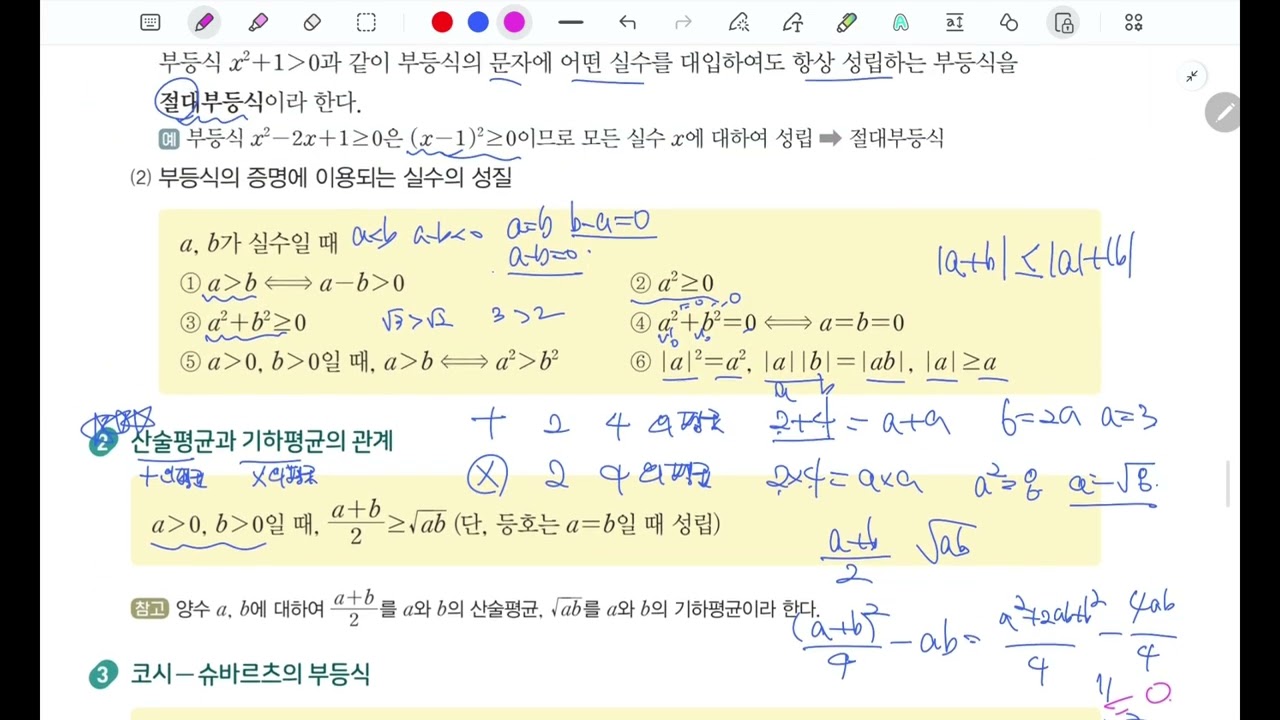 부등식 x²+1>0과 같이 부등식의 문자에 어떤 실수를 대입하여도 항상 성립하는 부등식을
절대부등식이라 한다.
예 부등식 x²−2x+1≥0은 (x−1)²≥0이므로 모든 실수 x에 대하여 성립 ➡ 절대부등식
(2) 부등식의 증명에 이용되는 실수의 성질
a=b b-a=0
a, b가 실수일 때 a<b a-b<0
a-b=0
|a+b| ≤ |a|+|b|
① a>b ⟺ a−b>0 ② a²≥0
③ a²+b²≥0 √3>√2 3>2 ④ a²+b²=0 ⟺ a=b=0
⑤ a>0, b>0일 때, a>b ⟺ a²>b² ⑥ |a|²=a², |a||b|=|ab|, |a|≥a
+ 2 4 의 평균 2+4 = a+a 6=2a a=3
2 산술평균과 기하평균의 관계
+의 평균 ×의 평균 × 2 4 의 평균 2×4 = a×a a²=8 a=√8
a>0, b>0일 때, (a+b)/2 ≥ √ab (단, 등호는 a=b일 때 성립)
(a+b)/2 √ab
참고 양수 a, b에 대하여 (a+b)/2를 a와 b의 산술평균, √ab를 a와 b의 기하평균이라 한다.
(a+b)²/4 − ab = (a²+2ab+b²)/4 − 4ab/4
3 코시−슈바르츠의 부등식
0